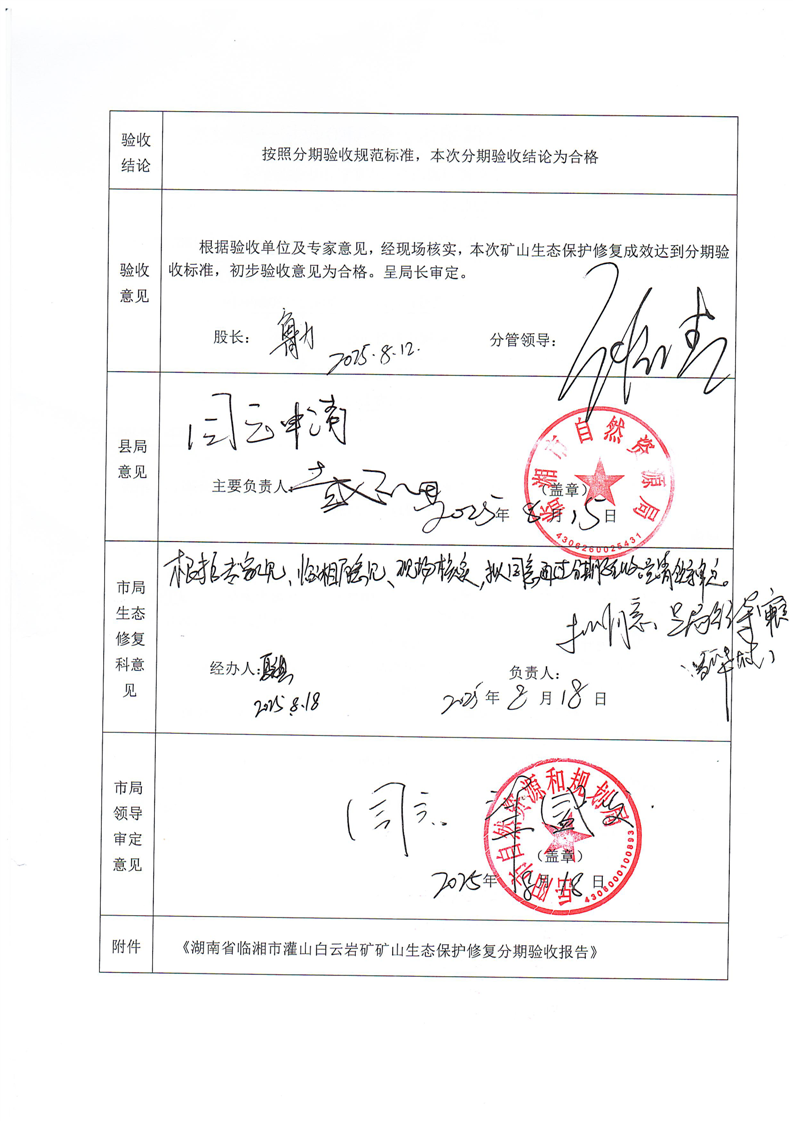 验收
结论
按照分期验收规范标准，本次分期验收结论为合格
验收
意见
根据验收单位及专家意见，经现场核实，本次矿山生态保护修复成效达到分期验
收标准，初步验收意见为合格。呈局长审定。
股长：
2025.8.12.
分管领导：
县局
意见
同意申请
主要负责人
（盖章）
2025年8月15日
临湘市自然资源局
4306260026431
市局
生态
修复
科意
见
根据专家意见、临湘局意见、现场核实，拟同意通过分期验收
拟同意
经办人：
2025.8.18
负责人：
2025年8月18日
市局
领导
审定
意见
同意
岳阳市自然资源和规划局
（盖章）
2025年8月18日
4306000100893
附件
《湖南省临湘市灌山白云岩矿矿山生态保护修复分期验收报告》